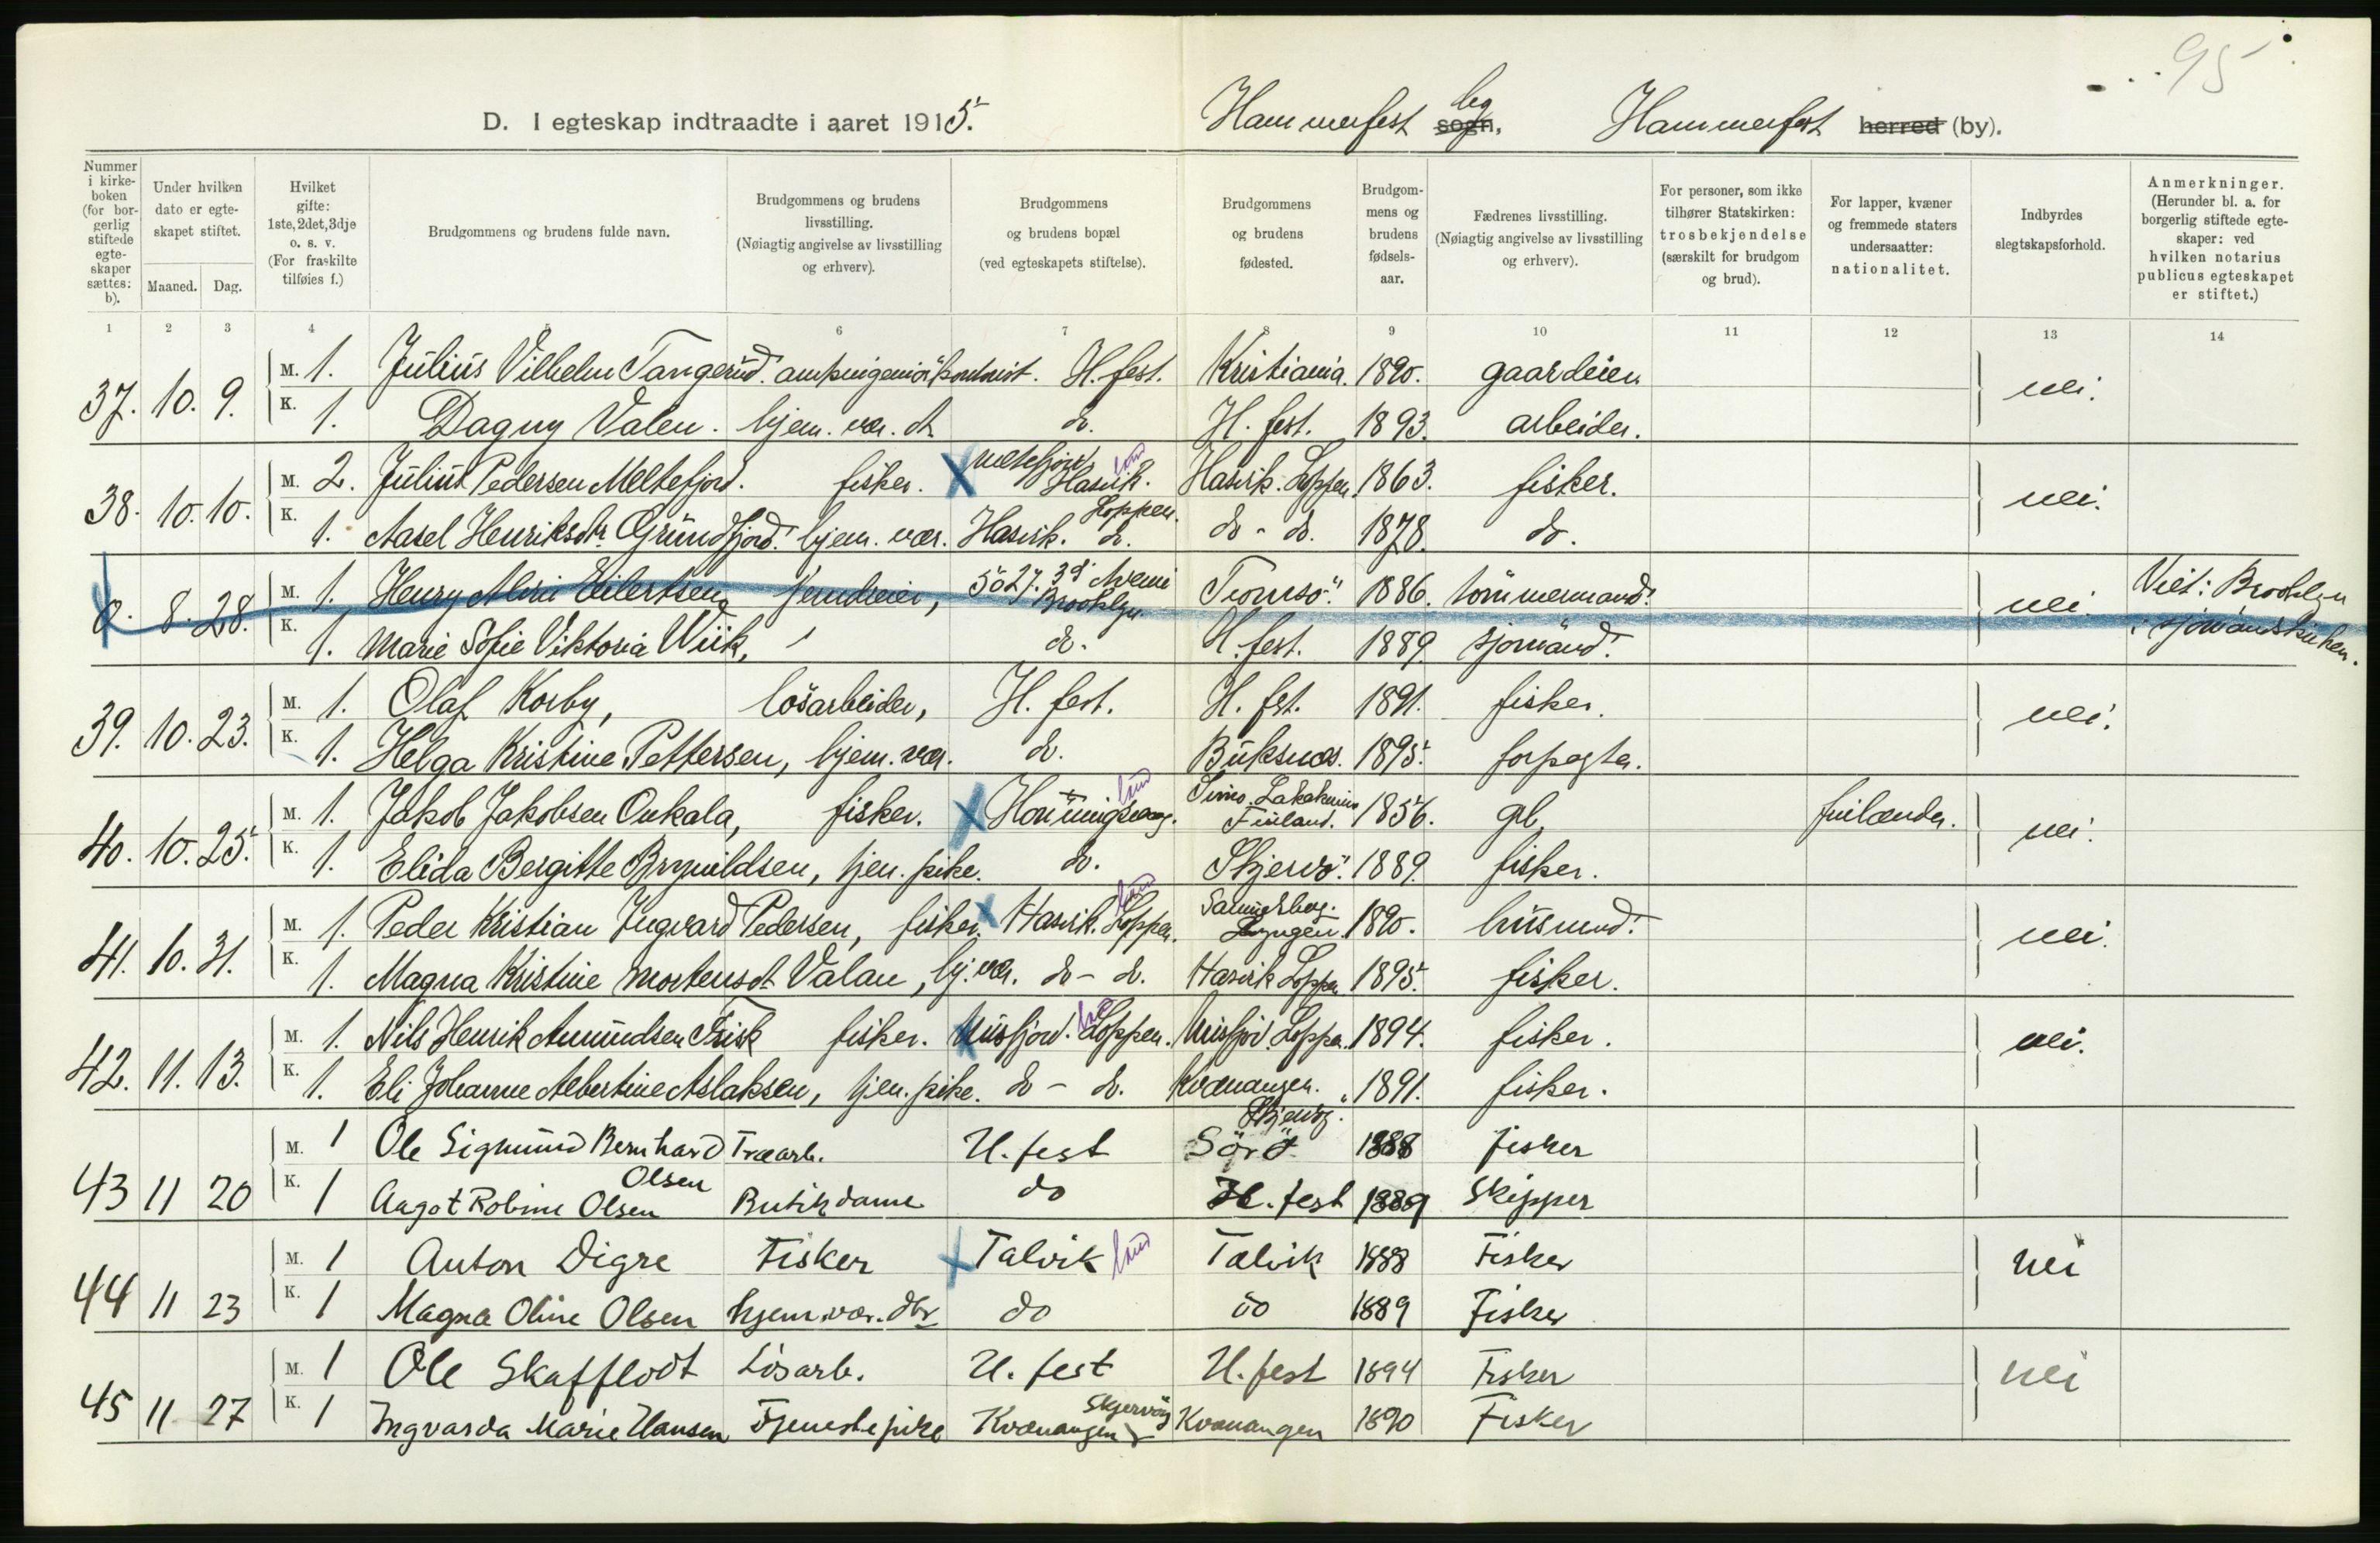 95
D. I egteskap indtraadte i aaret 1915.
Hammerfest sogn, leg Hammerfest herred (by).
Nummer i kirkeboken (for borgerlig stiftede egteskaper sættes: b).
Under hvilken dato er egteskapet stiftet.
Maaned. Dag.
Hvilket gifte: 1ste, 2det, 3dje o. s. v. (For fraskilte tilføies f.)
Brudgommens og brudens fulde navn.
Brudgommens og brudens livsstilling. (Nøiagtig angivelse av livsstilling og erhverv).
Brudgommens og brudens bopæl (ved egteskapets stiftelse).
Brudgommens og brudens fødested.
Brudgommens og brudens fødselsaar.
Fædrenes livsstilling. (Nøiagtig angivelse av livsstilling og erhverv).
For personer, som ikke tilhører Statskirken: trosbekjendelse (særskilt for brudgom og brud).
For lapper, kvæner og fremmede staters undersaatter: nationalitet.
Indbyrdes slegtskapsforhold.
Anmerkninger. (Herunder bl. a. for borgerlig stiftede egteskaper: ved hvilken notarius publicus egteskapet er stiftet.)
1 2 3 4 5 6 7 8 9 10 11 12 13 14
37. 10. 9. M. 1. Julius Vilhelm Tangerud. H. fest. Kristiania. 1890. gaardeier nei.
K. 1. Dagny Valen. hjem. vær. dt. do. H. fest. 1893. arbeider.
38. 10. 10. M. 2. Julius Pedersen Meltefjord. fisker. X Meltefjord Hasvik. Loppen. land Hasvik. Loppen. 1863. fisker. nei.
K. 1. Aasel Henriksdtr. Grundfjord. hjem. vær. Hasvik. do. do - do. 1878. do.
0. 8. 28. M. 1. Henry Eilertsen 5027. 3d Avenue Brooklyn Tromsö. 1886. tömmermand. nei. Viet: Brooklyn i sjömandskirken.
K. 1. Marie Sofie Viktoria Wiik, do. H. fest. 1889. sjömand.
39. 10. 23. M. 1. Olaf Korby, lösarbeider, H. fest. H. fest. 1891. fisker. nei.
K. 1. Helga Kristine Pettersen, hjem. vær. do. Buksnes. 1895. forpagter.
40. 10. 25. M. 1. Jakob Jakobsen Onkala, fisker. X Honningsvaag. land Simo, Finland. 1856. gb. finlænder. nei.
K. 1. Elida Bergitte Brynildsen, tjen. pike. do. Skjervö. 1889. fisker.
41. 10. 31. M. 1. Peder Kristian Ingvard Pedersen, fisker. X Hasvik. Loppen. land Lyngen. 1890. husmand. nei.
K. 1. Magna Kristine Mortensdt Valan, hj. vær. do - do. Hasvik Loppen 1895. fisker.
42. 11. 13. M. 1. Nils Henrik Amundsen Frisk fisker. X Nusfjord. Loppen. land Nusfjord Loppen. 1894. fisker. nei.
K. 1. Eli Johanne Albertine Aslaksen, tjen. pike. do - do. Kvænangen. Skjervöy. 1891. fisker.
43 11 20 M. 1 Ole Sigmund Bernhard Olsen Træarb. H. fest Sörö 1888 fisker
K. 1 Aagot Robine Olsen Butikdame do H. fest 1889 Skipper
44 11 23 M. 1 Anton Digre Fisker X Talvik land Talvik 1888 Fisker nei
K. 1 Magna Oline Olsen hjem. vær. dtr do do 1889 Fisker
45 11 27 M. 1 Ole Skafflodt Lösarb. H. fest H. fest 1894 Fisker nei
K. 1 Ingvarda Marie Hansen Tjenestepike Kvænangen Skjervöy Kvænangen 1890 Fisker